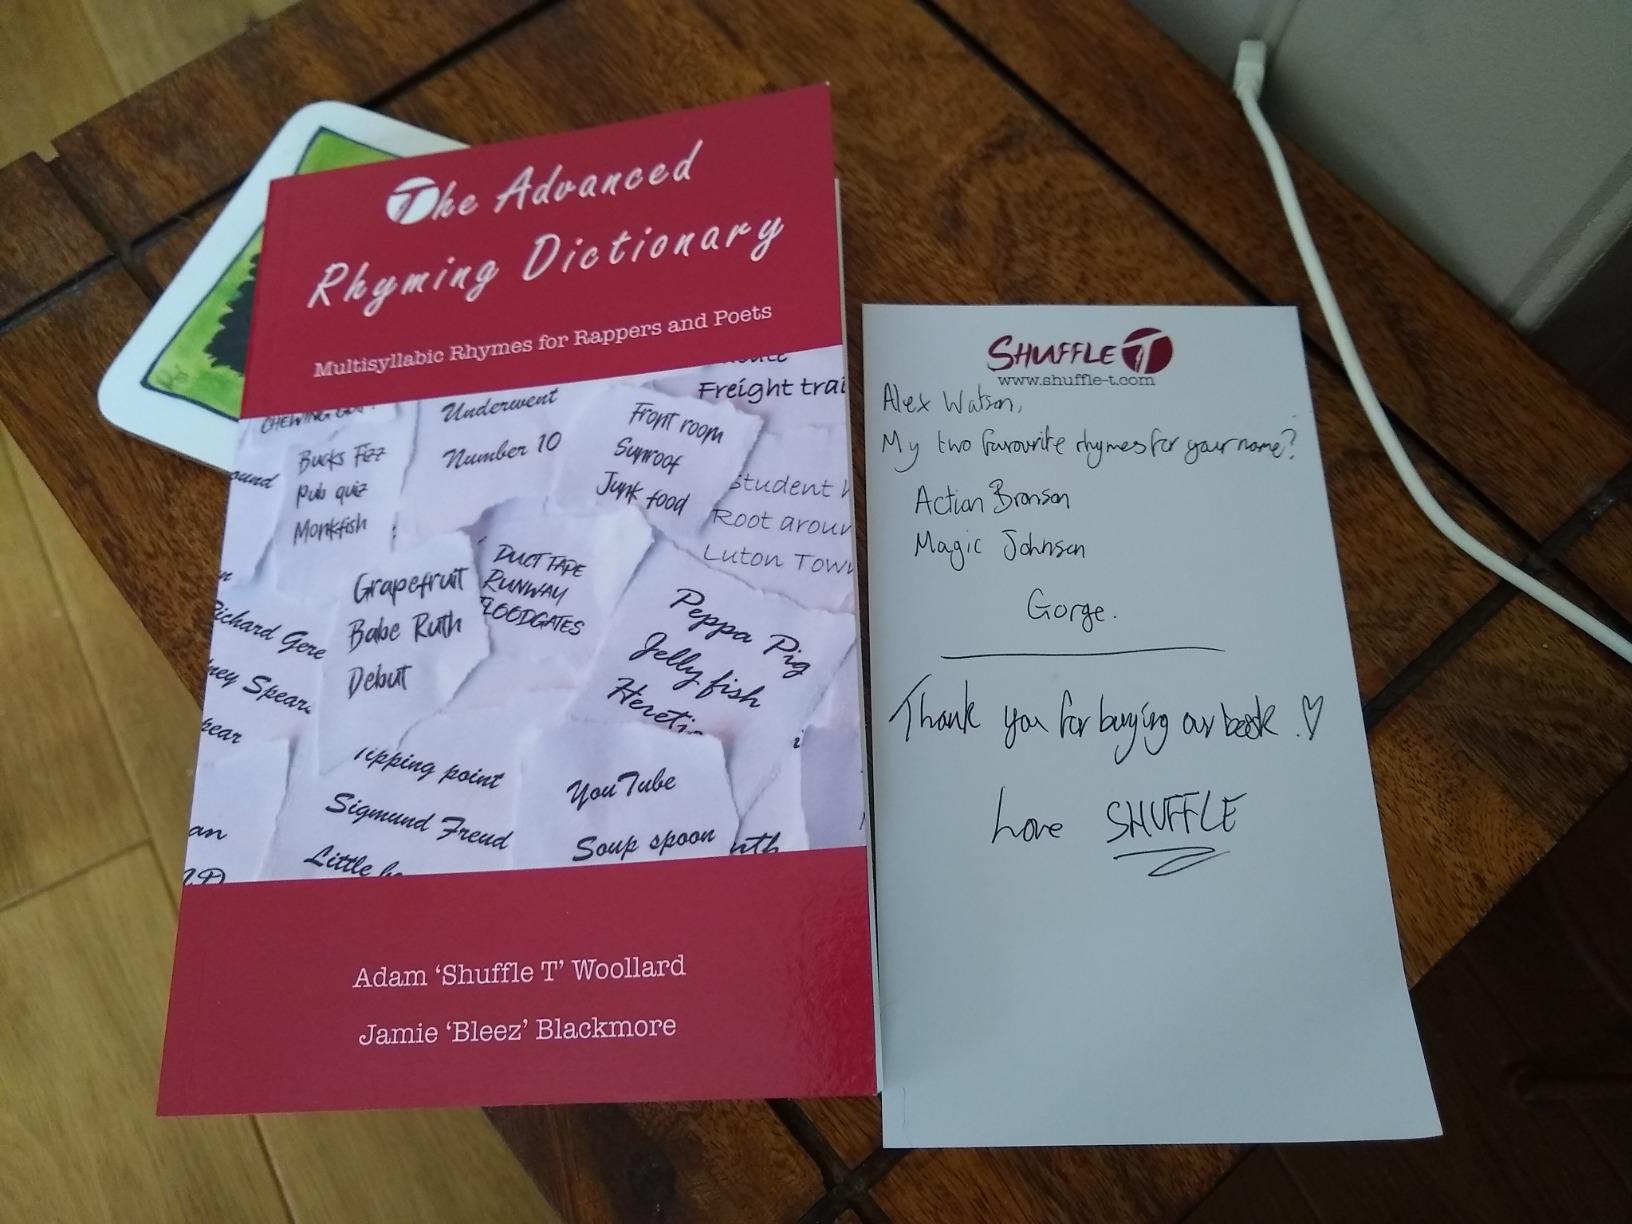 The Advanced
Rhyming Dictionary
Multisyllabic Rhymes for Rappers and Poets
Freight trai
CHEWING
Underwent
Number 10
Front room
Sunroof
Junk food
ound
Bucks Fizz
Pub quiz
Monkfish
Student
Root aroun
Luton Town
Grapefruit
Babe Ruth
Debut
DUCT TAPE
RUNWAY
FLOODGATES
Peppa Pig
Jelly fish
Hereti
Richard Gere
ney Spears
pear
Tipping point
Sigmund Freud
Little
YouTube
Soup spoon
uth
an
Adam ‘Shuffle T’ Woollard
Jamie ‘Bleez’ Blackmore
SHUFFLE T
www.shuffle-t.com
Alex Watson,
My two favourite rhymes for your name?
Action Bronson
Magic Johnson
Gorge.
Thank you for buying our book. ♡
Love SHUFFLE